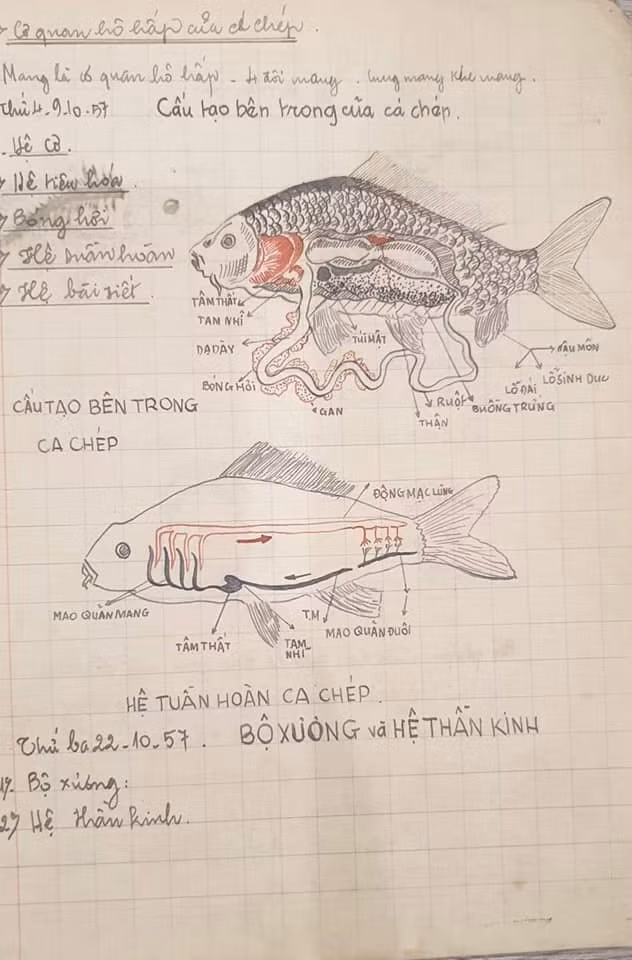 Cơ quan hô hấp của cá chép.
Mang là cơ quan hô hấp - 4 đôi mang. cung mang khe mang.
Thứ 4-9.10.57 Cấu tạo bên trong của cá chép.
Hệ cơ.
Hệ tiêu hóa.
Bóng hơi
Hệ tuần hoàn
Hệ bài tiết.
TÂM THẤT
TAM NHĨ
DẠ DÀY
TÚI MẬT
BÓNG HƠI
GAN
RUỘT
THẬN
BUỒNG TRỨNG
HẬU MÔN
LỖ ĐÁI
LỖ SINH DỤC
CẤU TẠO BÊN TRONG
CA CHÉP
ĐỘNG MẠC LƯNG
MAO QUẢN MANG
TÂM THẤT
TAM NHĨ
T.M
MAO QUẢN ĐUÔI
HỆ TUẦN HOÀN CA CHÉP.
Thứ ba 22-10-57. BỘ XƯƠNG và HỆ THẦN KINH
Bộ xương:
2) Hệ thần kinh.